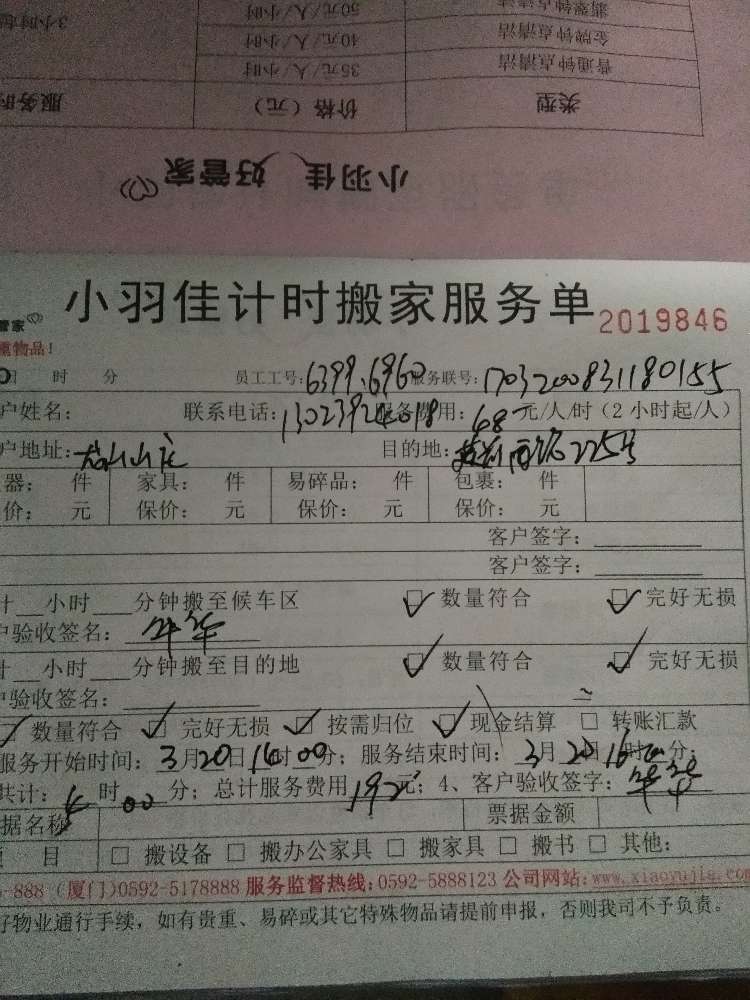 翡翠钟点清洁 50元/人/小时
金牌钟点清洁 40元/人/小时 3小时
普通钟点清洁 35元/人/小时
类型 价格（元） 服务时
小羽佳 好管家
管家
小羽佳计时搬家服务单 2019846
重物品！
时 分 员工工号：6399.6960 服务联号：1703200831180155
户姓名： 联系电话： 服务费用：48元/人/时（2小时起/人）
户地址： 山庄 目的地： 路225号
器： 件 家具： 件 易碎品： 件 包裹： 件
价： 元 保价： 元 保价： 元 保价： 元
客户签字：
客户签字：
计__小时___分钟搬至候车区 ☑ 数量符合 ☑ 完好无损
户验收签名：
计__小时___分钟搬至目的地 ☑ 数量符合 ☑ 完好无损
户验收签名：
☑ 数量符合 ☑ 完好无损 ☑ 按需归位 ☑ 现金结算 □ 转账汇款
服务开始时间：3月20日16时00分；服务结束时间：3月20日16时 分；
共计： 时00分；总计服务费用192元；4、客户验收签字：
据名称 票据金额
项 目 □ 搬设备 □ 搬办公家具 □ 搬家具 □ 搬书 □ 其他：
-888（厦门）0592-5178888 服务监督热线：0592-5888123 公司网站：www.xiaoyujia.com
好物业通行手续，如有贵重、易碎或其它特殊物品请提前申报，否则我司不予负责。